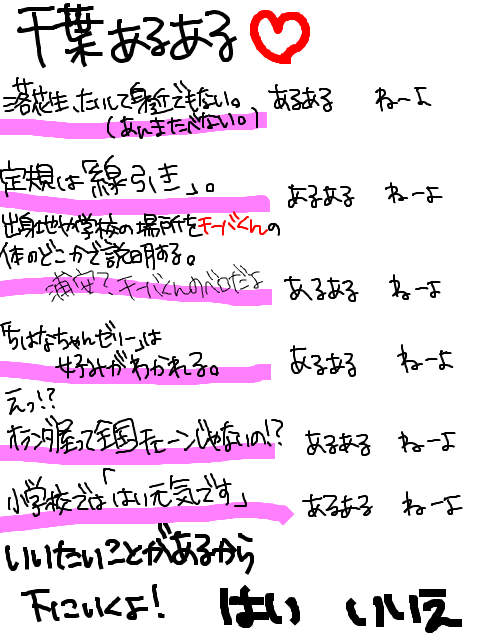 千葉あるある
落花生、たいして身近でもない。 あるある ねーよ
(あんまたべない。)
定規は「線引き」。 あるある ねーよ
出身地や学校の場所をチーバくんの
体のどこかで説明する。
浦安？チーバくんのベロだよ あるある ねーよ
「ちはなちゃんゼリー」は
好みがわかれる。 あるある ねーよ
えっ!?
オランダ屋って全国チェーンじゃないの!? あるある ねーよ
小学校では「はい元気です」 あるある ねーよ
いいたいことがあるから
下にいくよ! はい いいえ